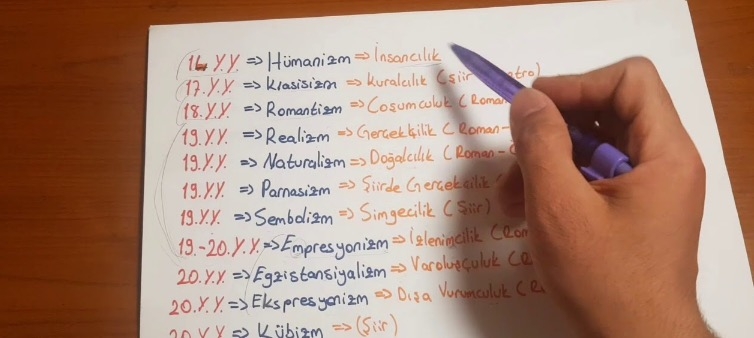 14. Y.Y => Hümanizm => İnsancılık
17. Y.Y. => Klasisizm => Kuralcılık (Şiir
18. Y.Y. => Romantizm => Coşumculuk (Roman
19. Y.Y. => Realizm => Gerçekçilik (Roman-
19. Y.Y. => Natüralizm => Doğalcılık (Roman-
19. Y.Y. => Parnasizm => Şiirde Gerçekçilik
19. Y.Y. => Sembolizm => Simgecilik (Şiir)
19.-20. Y.Y. => Empresyonizm => İzlenimcilik (Rom
20. Y.Y. => Egzistansiyalizm => Varoluşçuluk (R
20. Y.Y. => Ekspresyonizm => Dışa Vurumculuk (R
20. Y.Y => Kübizm => (Şiir)